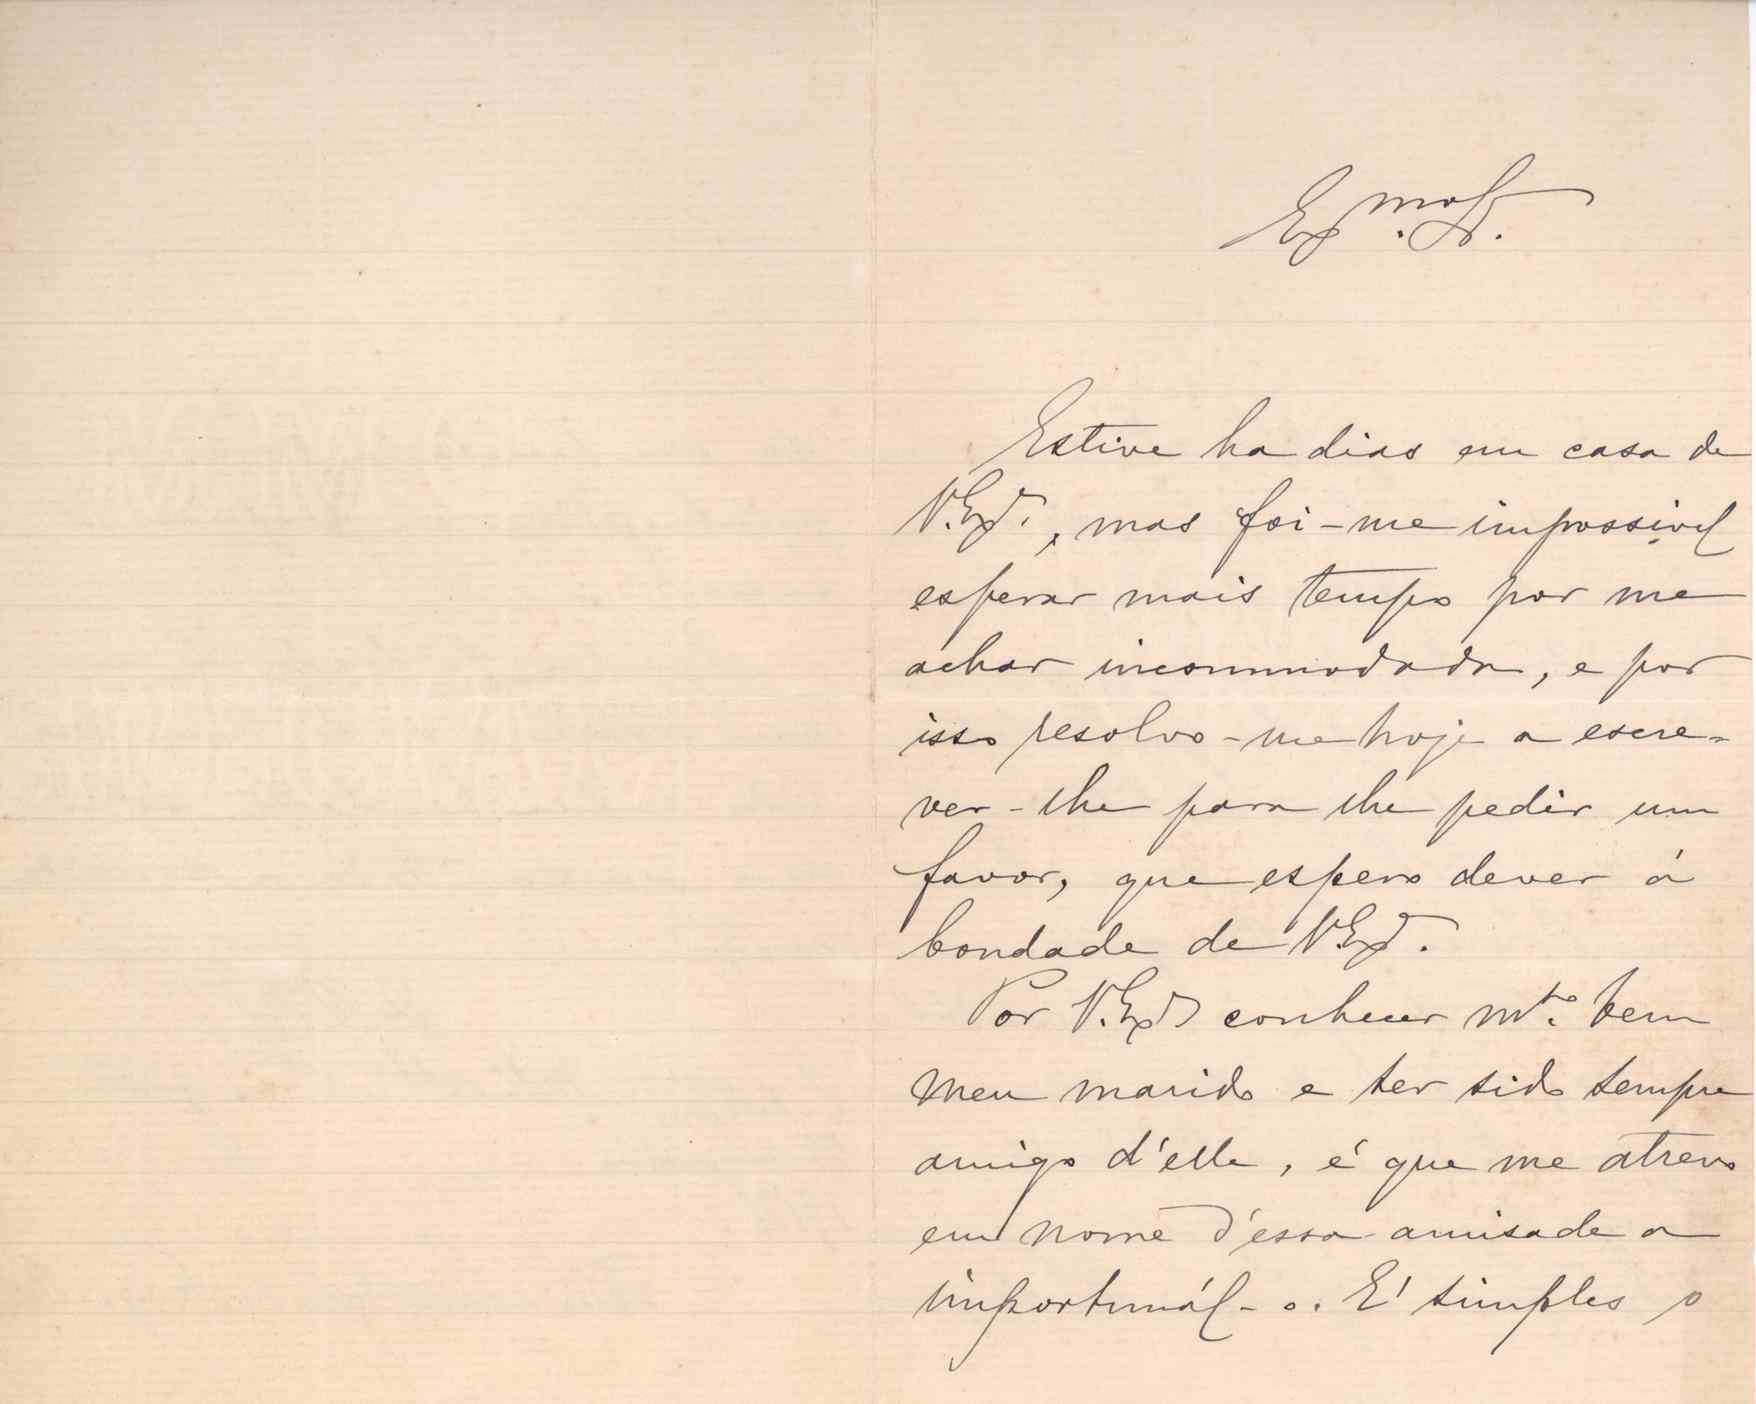 Ex.mo Sr.
Estive ha dias em casa de
V. Ex.a, mas foi-me impossivel
esperar mais tempo por me
achar incommodada, e por
isso resolvo-me hoje a escre-
ver-lhe para lhe pedir um
favor, que espero dever á
bondade de V. Ex.a.
Por V. Ex.a conhecer mto. bem
meu marido e ter sido sempre
amigo d'elle, é que me atrevo
em nome d'essa amisade a
importunál-o. E' simples o